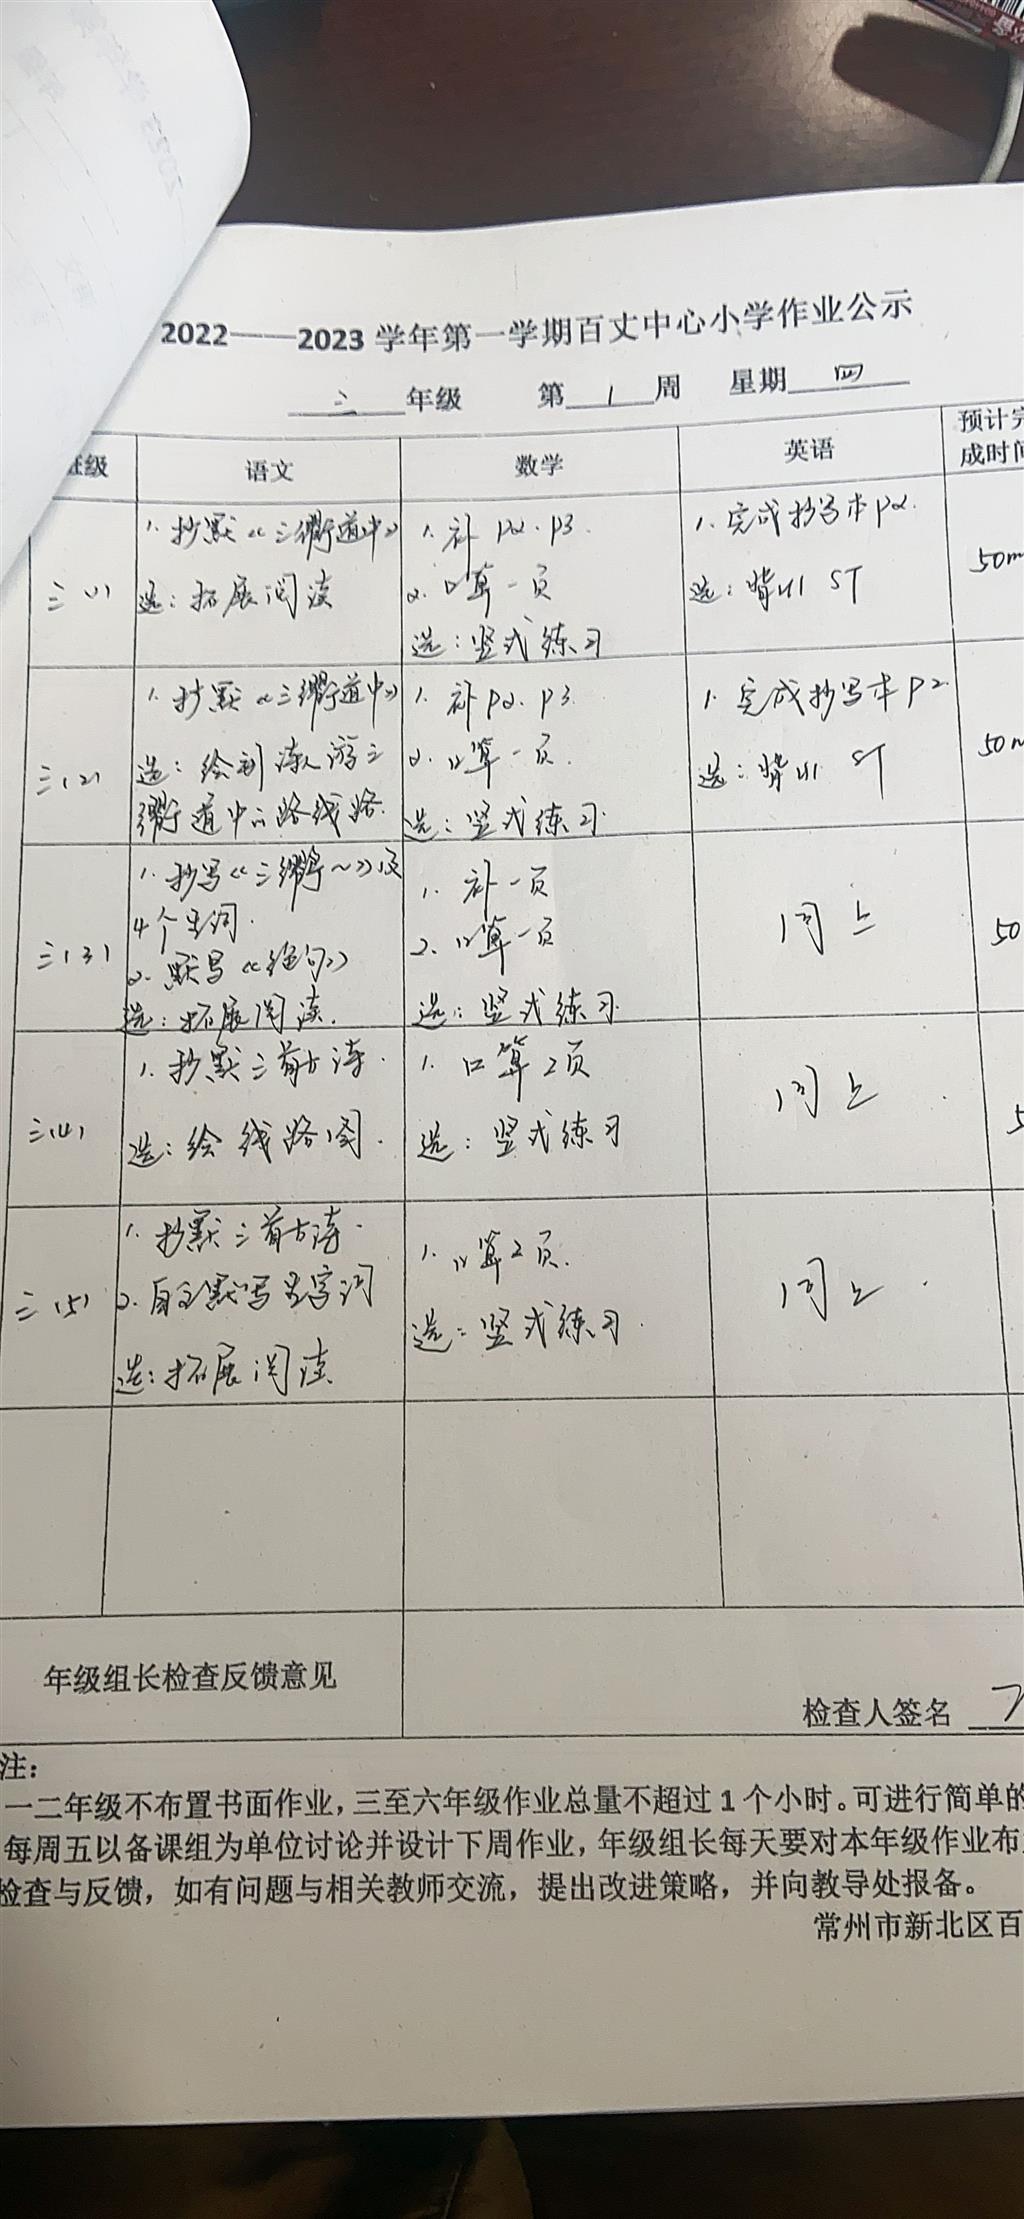 2022——2023学年第一学期百丈中心小学作业公示
三 年级 第 1 周 星期 四
班级 语文 数学 英语 预计完
成时间
三(1)
1. 抄默《三衢道中》
选：拓展阅读
1. 补 P2. P3.
2. 口算一页
选：竖式练习
1. 完成抄写本P2.
选：背U1 ST
50m
三(2)
1. 抄默《三衢道中》
选：绘制诗人游三
衢道中的路线路.
1. 补P2. P3.
2. 口算一页.
选：竖式练习.
1. 完成抄写本P2.
选：背U1 ST
50m
三(3)
1. 抄写《三衢~》及
4个生词.
2. 默写《绝句》
选：拓展阅读.
1. 补一页
2. 口算一页
选：竖式练习.
同上
50
三(4)
1. 抄默三首古诗.
选：绘线路图.
1. 口算2页
选：竖式练习
同上
5
三(5)
1. 抄默三首古诗.
2. 自主默写生字词
选：拓展阅读.
1. 口算2页.
选：竖式练习.
同上.
年级组长检查反馈意见
检查人签名
注：
一二年级不布置书面作业，三至六年级作业总量不超过1个小时。可进行简单的
每周五以备课组为单位讨论并设计下周作业，年级组长每天要对本年级作业布
检查与反馈，如有问题与相关教师交流，提出改进策略，并向教导处报备。
常州市新北区百